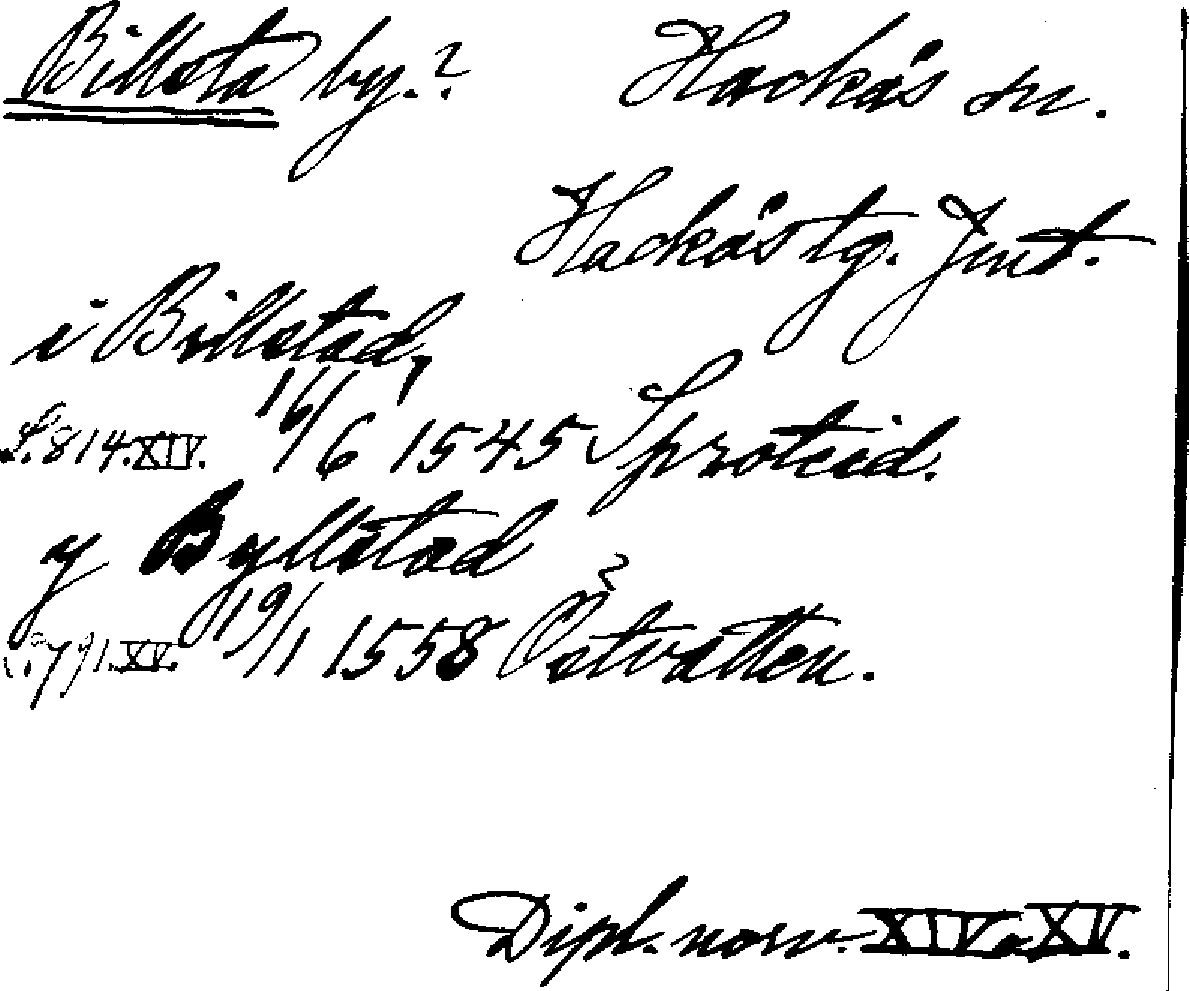 Billsta by.? Hackås sn.
Hackås tg. Jmt.
i Billstad,
S.814.XIV. 16/6 1545 Sproteid.
y Byllstad
S.791.XV. 19/1 1558 Östvatten.
Dipl. norv. XIV o XV.